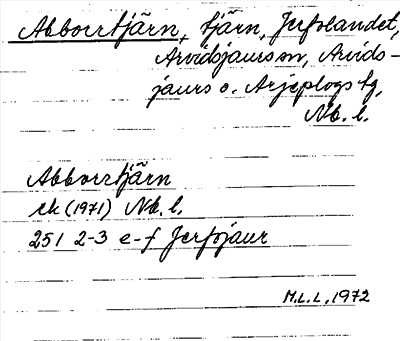 Abborrtjärn, tjärn, Jerfolandet,
Arvidsjaurs sn, Arvids-
jaurs o. Arjeplogs tg,
Nb. l.
Abborrtjärn
ek (1971) Nb. l.
25 I 2-3 e-f Jerfojaur
M.L.L. 1972